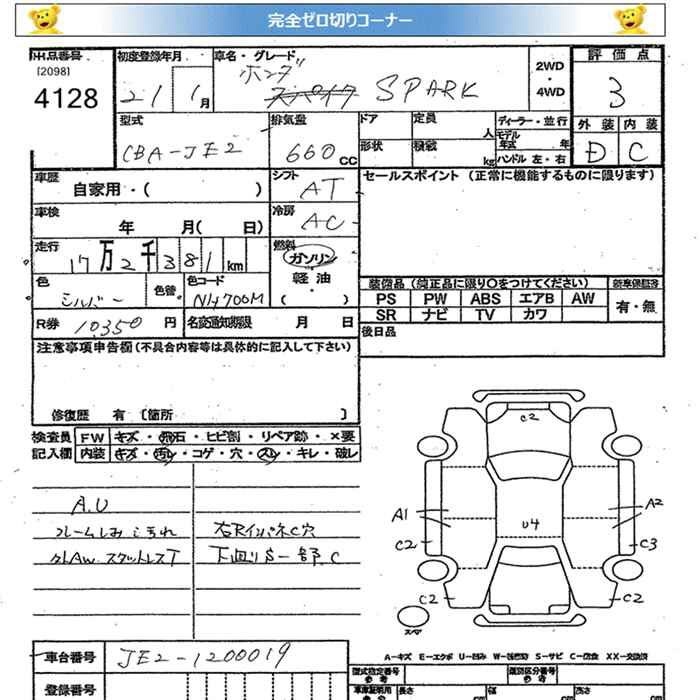 完全ゼロ切りコーナー
出品番号
[2098]
4128
初度登録年月
21 1月
車名・グレード
ホンダ
スパイク SPARK
2WD
・
4WD
評価点
3
外装 内装
D C
型式
CBA-JE2
排気量
660cc
ドア
定員
人
形状
積載
kg
ディーラー・並行
モデル
年式 年
ハンドル 左・右
車歴
自家用・( )
シフト
AT
セールスポイント (正常に機能するものに限ります)
車検
年 月( 日)
冷房
AC
走行
17万2千381km
燃料
ガソリン
軽油
( ・ )
色
シルバー
色替
色コード
NH700M
装備品 (純正品に限り○をつけてください)
新車保証書
PS PW ABS エアB AW
SR ナビ TV カワ
有・無
R券 10350円
名変通知期限 月 日
後日品
注意事項申告欄(不具合内容等は具体的に記入して下さい)
修復歴 有 [箇所 ]
検査員 FW キズ・飛石・ヒビ割・リペア跡・×要
記入欄 内装 キズ・汚レ・コゲ・穴・スレ・キレ・破レ
A.U
右Rインパネ C穴
下廻りS一部C
C2
A1
A2
U4
C2
C3
C2
C2
スペア
A-キズ E-エクボ U-凹み W-(板金)跡 S-サビ C-腐食 XX-交換済
車台番号 JE2-1200019
登録番号
型式指定番号
参考
類別区分番号
参考
車庫証明用
参考
長さ cm
幅 cm
高さ cm